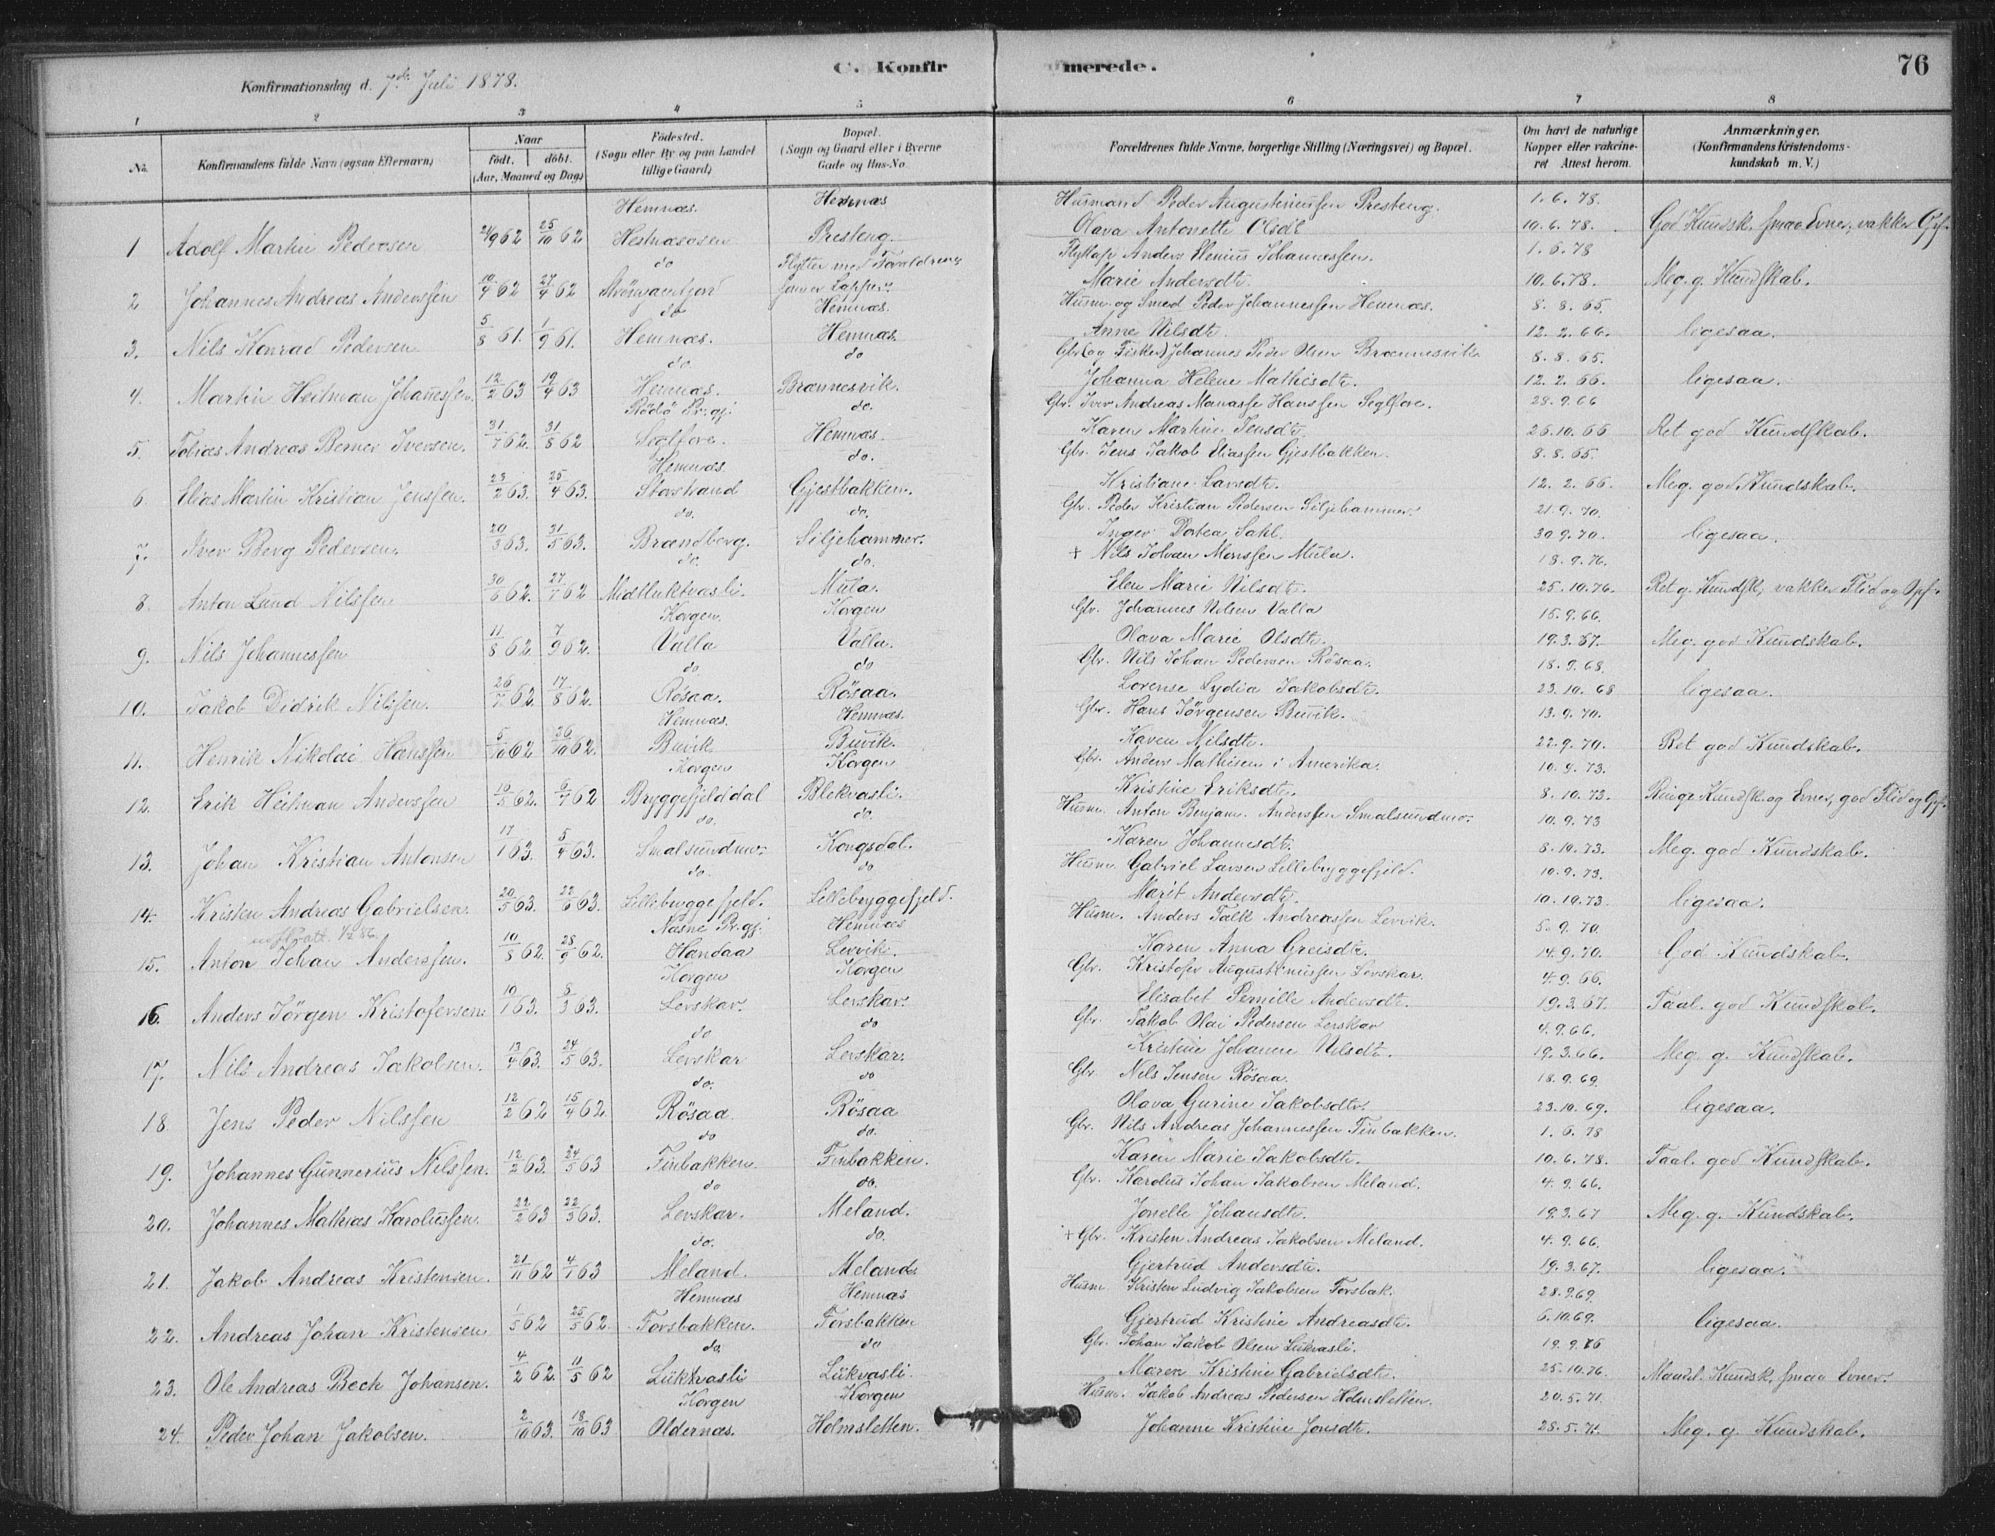 Konfirmationsdag d. 7de Juli 1878.
C. Konfirmerede.
76
1 2 3 4 5 6 7 8
No. Konfirmandens fulde Navn (ogsaa Efternavn) Naar födt. döbt. (Aar, Maaned og Dag) Födested. (Sogn eller By og paa Landet tillige Gaard) Bopæl. (Sogn og Gaard eller i Byerne Gade og Hus-No. Forældrenes fulde Navne, borgerlige Stilling (Næringsvei) og Bopæl. Om havt de naturlige Kopper eller vakcineret. Attest herom. Anmærkninger. (Konfirmandens Kristendomskundskab m. V.)
Hemnæs. Hemnæs Husmand Peder Augustinussen Presteng. 1.6.78.
1 Adolf Martin Pedersen 2/9 62 25/10 62 Presteng. Olava Antonette Olsdt. 10.6.78. God Kundsk. smaa Evner, vakker Opf.
do Flytter med Forældrene Anders Johannessen. 1.6.78
2 Johannes Andreas Anderssen 10/4 62 27/4 62 Marie Andersdt. 10.6.78. Meg. g. Kundskab.
do Hemnæs. Husm. og Smed Peder Johannessen Hemnæs. 8.8.65.
3. Nils Konrad Pedersen 5/8 61. 1/9 61. Hemnæs. Hemnæs. Anne Nilsdt. 12.2.66. ligesaa.
do do Gbr. (og Fisker) Johannes Peder Olsen Brænnesvik. 8.8.65.
4. Martin Heitman Johanssen. 12/2 63 19/4 63 Hemnæs. Brænnesvik. Johanna Helene Mathisdt. 12.2.66. ligesaa.
Rödö Pr.gj. do. Gbr. Iver Andreas Manasse Hanssen Seglfore. 28.9.66
5. Tobias Andreas Berner Iversen. 31/7 62. 31/8 62 Seglfore. Hemnæs. Karen Martine Jensdt. 26.10.66 Ret god Kundskab.
Hemnæs. do. Gbr. Jens Jakob Eliassen Gjestbakken. 8.8.65.
6. Elias Martin Kristian Jenssen. 23/2 63. 25/4 63. Storstrand Gjestbakken. Kristiane Larsdt. 12.2.66. Meg. god Kundskab.
do. do. Gbr. Peder Kristian Pedersen Siljehammer. 21.9.70.
7. Iver Berg Pedersen. 20/3 63. 31/5 63. Brændberg. Siljehammer. Inger Dortea Dahl. 30.9.70. ligesaa.
do. do. + Nils Johan Monssen Mula. 18.9.76.
8. Anton Lund Nilssen 30/6 62. 27/7 62 Midtluktvasli. Mula. Elen Marie Nilsdt. 25.10.76. Ret g. Kundsk., vakker Flid og Opf.
Korgen. Korgen Gbr. Johannes Nilsen Valla 15.9.66.
9. Nils Johannessen 11/8 62. 7/9 62. Valla Valla. Olava Marie Olsdt. 19.3.67. Meg. god Kundskab.
do do Gbr. Nils Johan Pedersen Rösaa. 18.9.68.
10. Jakob Didrik Nilssen. 26/7 62. 17/8 62. Rösaa. Rösaa. Lorense Lydia Jakobsdt. 23.10.68 ligesaa.
Hemnæs. Hemnæs. Gbr. Hans Jörgensen Buvik. 13.9.70.
11. Henrik Nikolai Hanssen 5/10 62. 26/10 62. Buvik Buvik. Karen Nilsdt. 22.9.70. Ret god Kundskab.
Korgen Korgen Gbr. Anders Mathisen i Amerika. 10.9.73.
12. Erik Heitman Anderssen 10/5 62. 6/7 62 Bryggefjelddal Blekvasli. Kristine Eriksdt. 8.10.73. Ringe Kundsk. og Evner, god Flid og Opf.
do. do. Husm. Anton Benjam. Anderssen Smalsundmo. 10.9.73
13. Johan Kristian Antonsen 17/1 63. 5/4 63. Smalsundmo. Kongsdal. Karen Johannesdt. 8.10.73. Meg. god Kundskab.
do. do Husm. Gabriel Larsen Lillebryggefjeld. 10.9.73.
14. Kristen Andreas Gabrielsen. 20/5 63. 22/6 63. Lillebryggefjeld. Lillebryggefjeld. Marit Andersdt. 10.10.73. ligesaa.
Næsne Pr.gj. Hemnæs Husm. Anders Falk Andreassen Levvik. 5.9.70.
15. Anton Johan Anderssen. 10/8 62. 28/9 62. Handaa Levvik. Karen Anna Greisdt. 14.9.70. God Kundskab.
Korgen Korgen Gbr. Kristofer Augustinussen Levskar. 4.9.66.
16. Anders Jörgen Kristofersen. 19/1 63. 8/3 63. Levskar. Levskar. Elisabet Pernille Andersdt. 19.3.67. Taal. god Kundskab.
do do Gbr. Jakob Olai Pedersen Levskar 4.9.66.
17. Nils Andreas Jakobsen. 13/4 63. 24/5 63. Levskar Levskar. Kristine Johanne Nilsdt. 19.3.66. Meg. g. Kundskab.
do. do Gbr. Nils Jensen Rösaa. 18.9.69.
18. Jens Peder Nilssen 12/2 62 15/4 62. Rösaa Rösaa Olava Gurine Jakobsdt. 23.10.69. ligesaa.
do do. Gbr. Nils Andreas Johannessen Finbakken. 1.6.78
19. Johannes Gunnerius Nilssen. 12/2 63. 24/5 63 Finbakken. Finbakken. Karen Marie Jakobsdt. 10.6.78. Taal. god Kundskab.
do do. Gbr. Karolus Johan Jakobsen Meland. 4.9.66.
20. Johannes Mathias Karolussen. 22/2 63 22/3 63. Levskar. Meland. Jonelle Johansdt. 19.3.67 Meg. g. Kundskab.
do. do. + Gbr. Kristen Andreas Jakobsen Meland. 4.9.66.
21. Jakob Andreas Kristensen. 21/11 62 4/1 63 Meland. Meland. Gjertrud Andersdt. 19.3.67. ligesaa.
Hemnæs Hemnæs Husm Kristen Ludvig Jakobsen Forsbak. 28.9.69.
22. Andreas Johan Kristensen 1/5 62 25/5 62. Forsbakken. Forsbakken Gjertrud Kristine Andreasdt. 6.10.69. ligesaa.
do. do Gbr. Johan Jakob Olsen Lukvasli. 19.9.76
23. Ole Andreas Bech Johansen. 4/2 62. 11/5 62 Lukkvasli Lukvasli. Maren Kristine Gabrielsdt. 25.10.76. Maadel. Kundsk., smaa Evner.
Korgen Korgen Husm. Jakob Andreas Pedersen Holmsletten. 20.5.71.
24. Peder Johan Jakobsen. 2/10 63. 18/10 63 Oldernæs. Holmsletten. Johanne Kristine Jonsdt. 28.5.71. Meg. g. Kundskab.